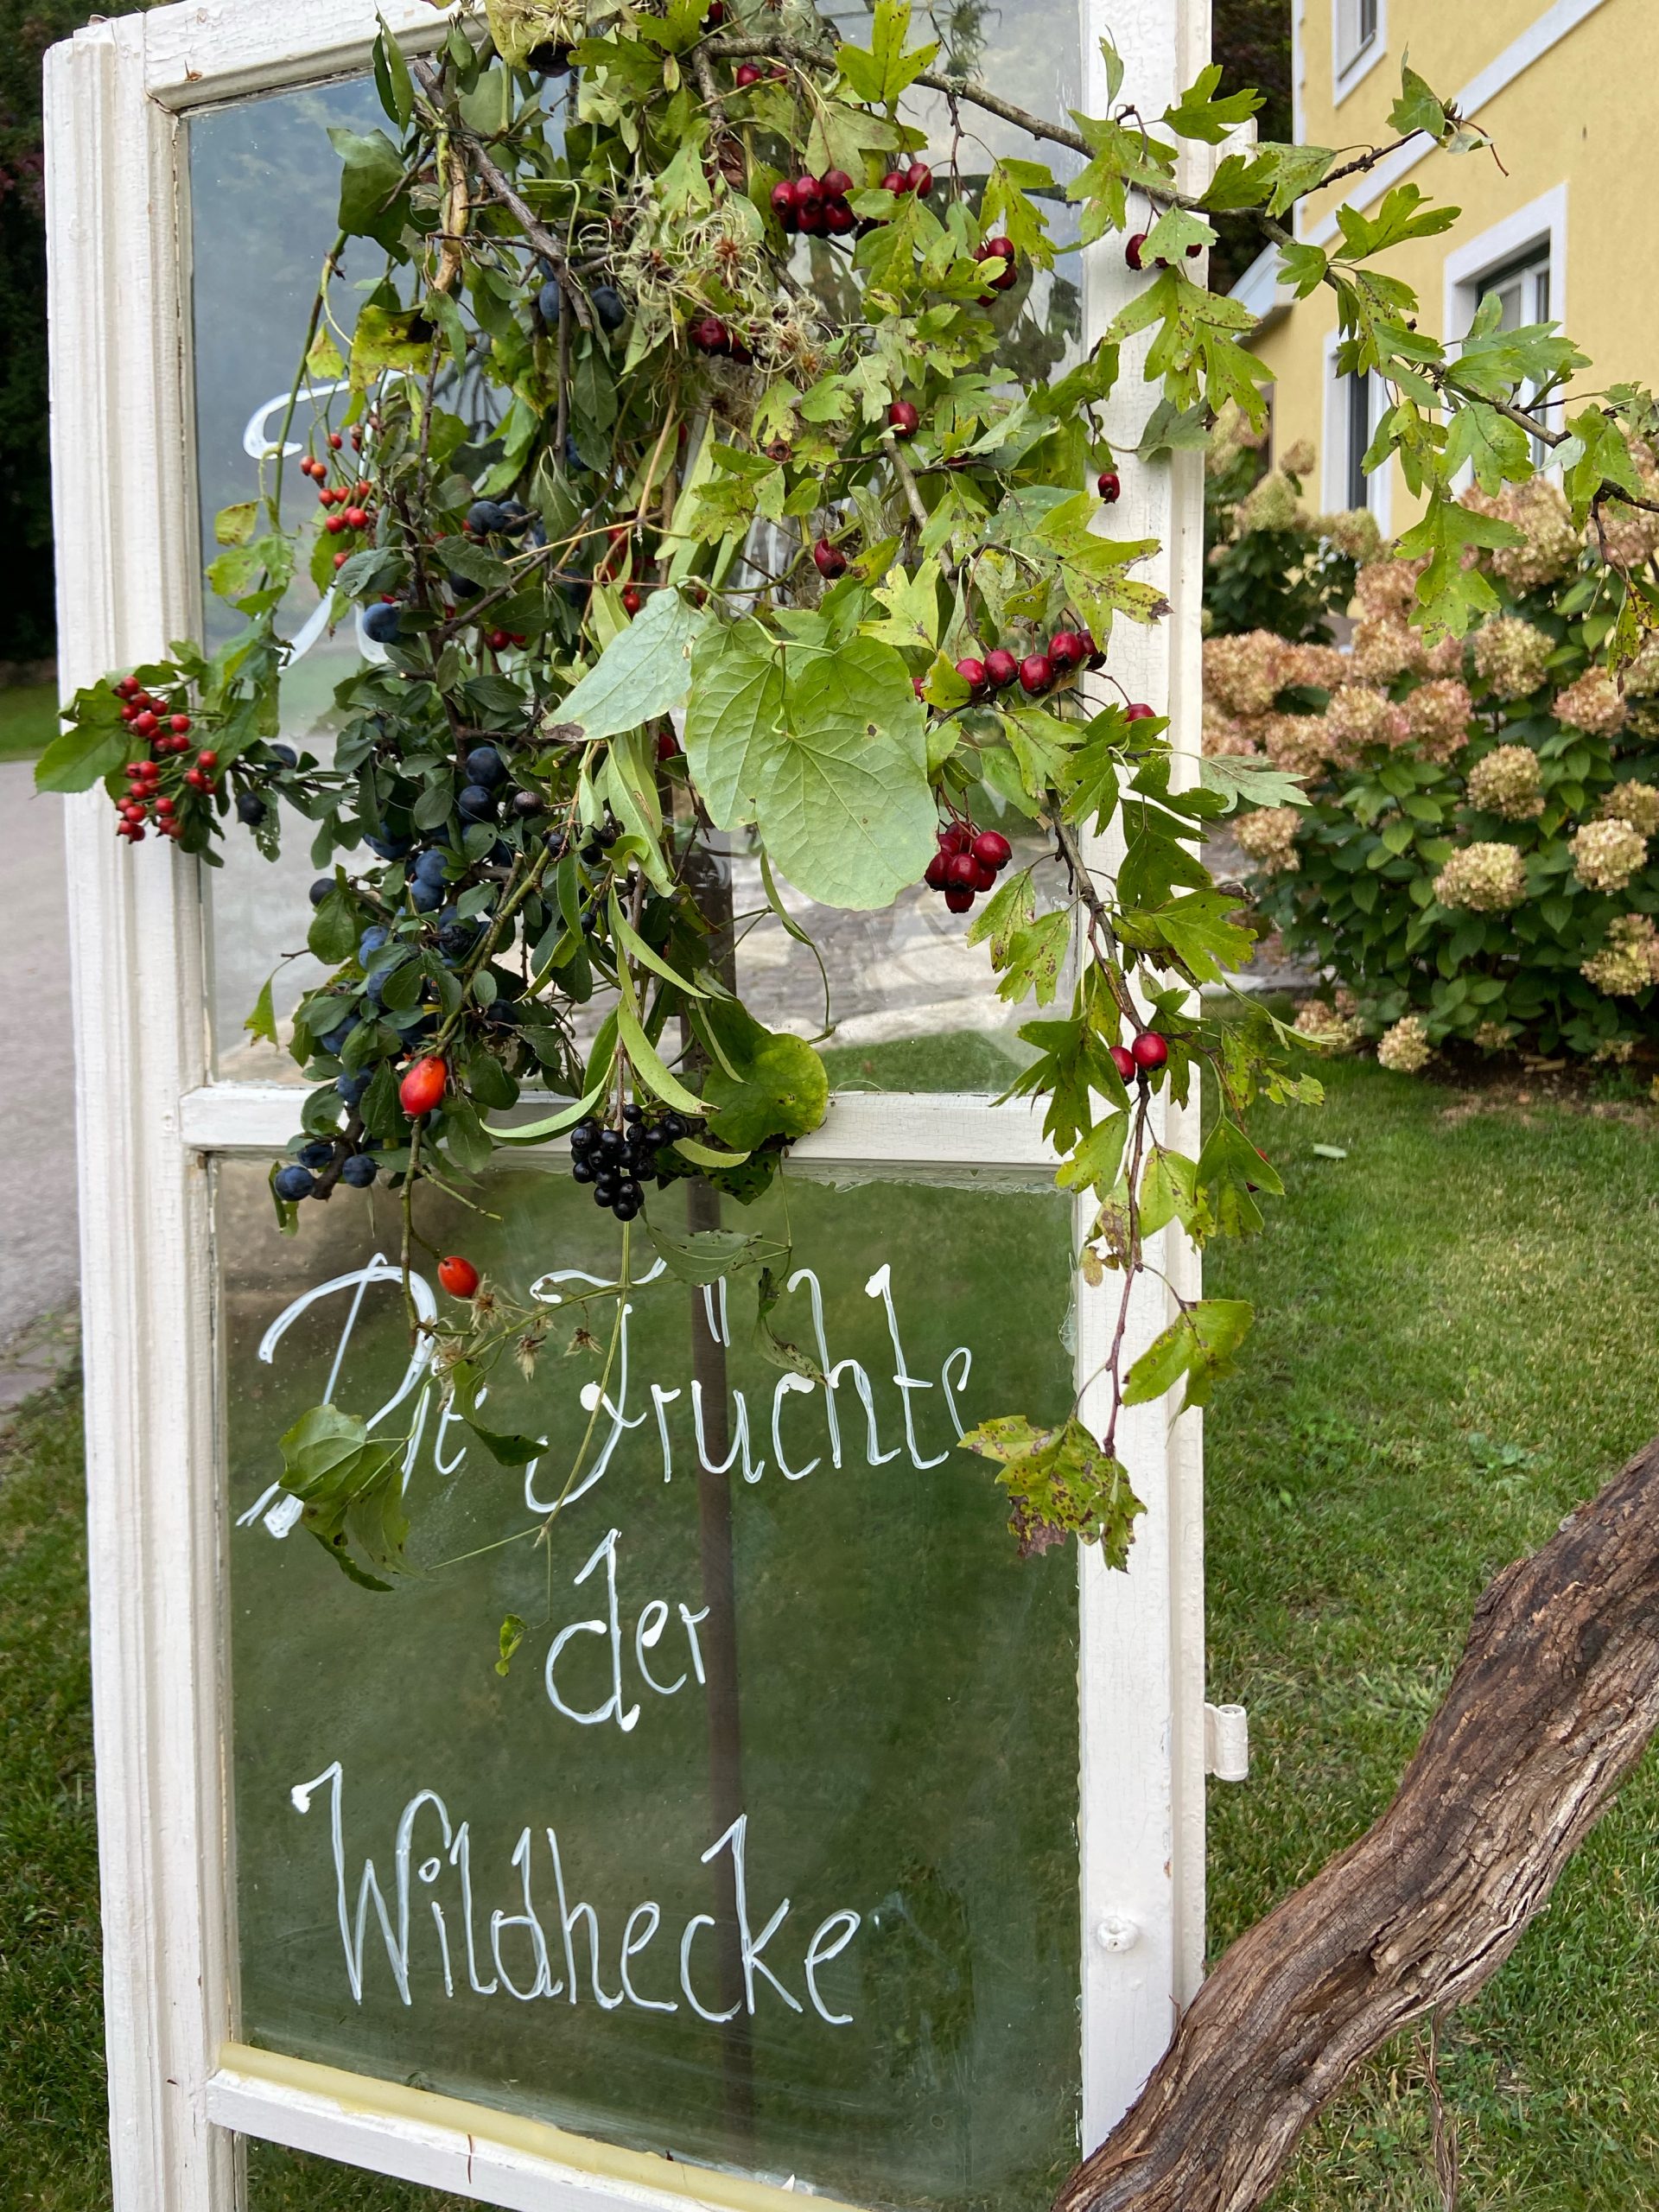 Die Früchte
der
Wildhecke